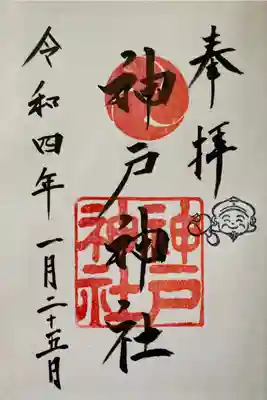 奉拝
神戸神社
神戸
神社
令和四年 一月二十五日